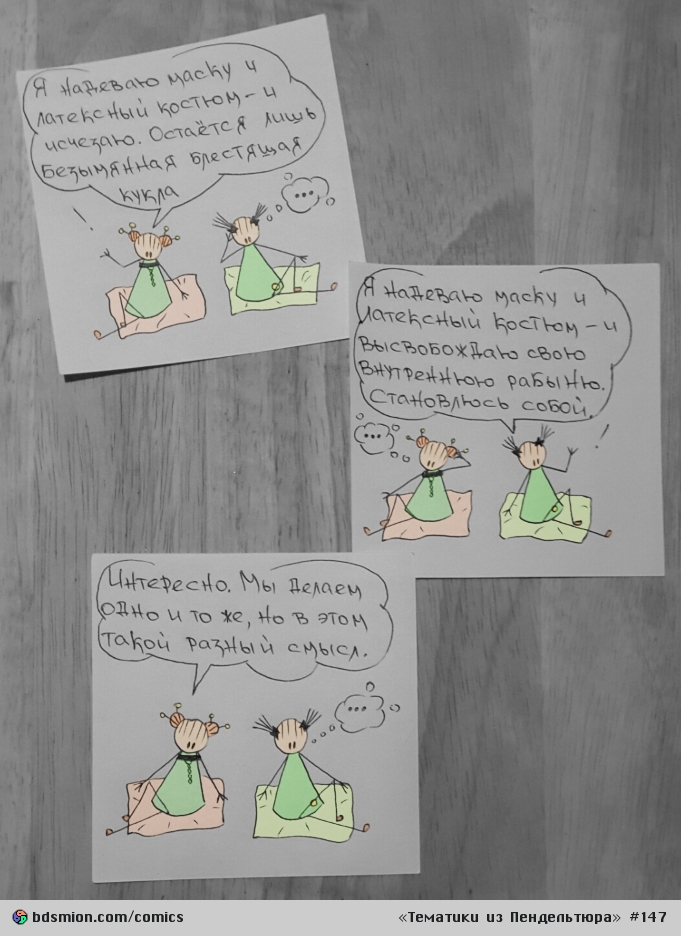 Я надеваю маску и
латексный костюм – и
исчезаю. Остаётся лишь
безымянная блестящая
кукла
...
Я надеваю маску и
латексный костюм – и
высвобождаю свою
внутреннюю рабыню.
Становлюсь собой.
...
Интересно. Мы делаем
одно и то же, но в этом
такой разный смысл.
...
bdsmion.com/comics «Тематики из Пендельтюра» #147